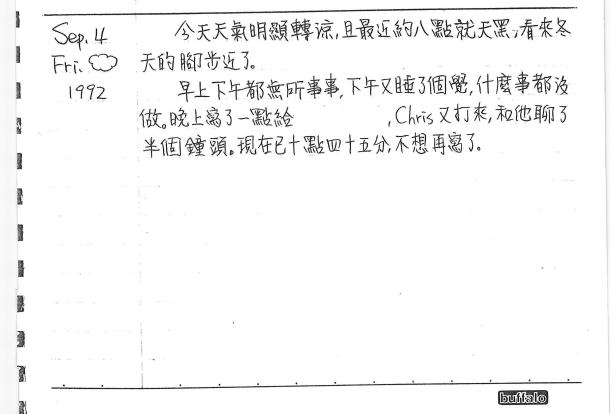 Sep. 4
Fri.
1992
今天天氣明顯轉涼,且最近約八點就天黑,看來冬
天的腳步近了。
早上下午都無所事事,下午又睡了個覺,什麼事都沒
做。晚上寫了一點給 ,Chris又打來,和他聊了
半個鐘頭。現在已十點四十五分,不想再寫了。
buffalo